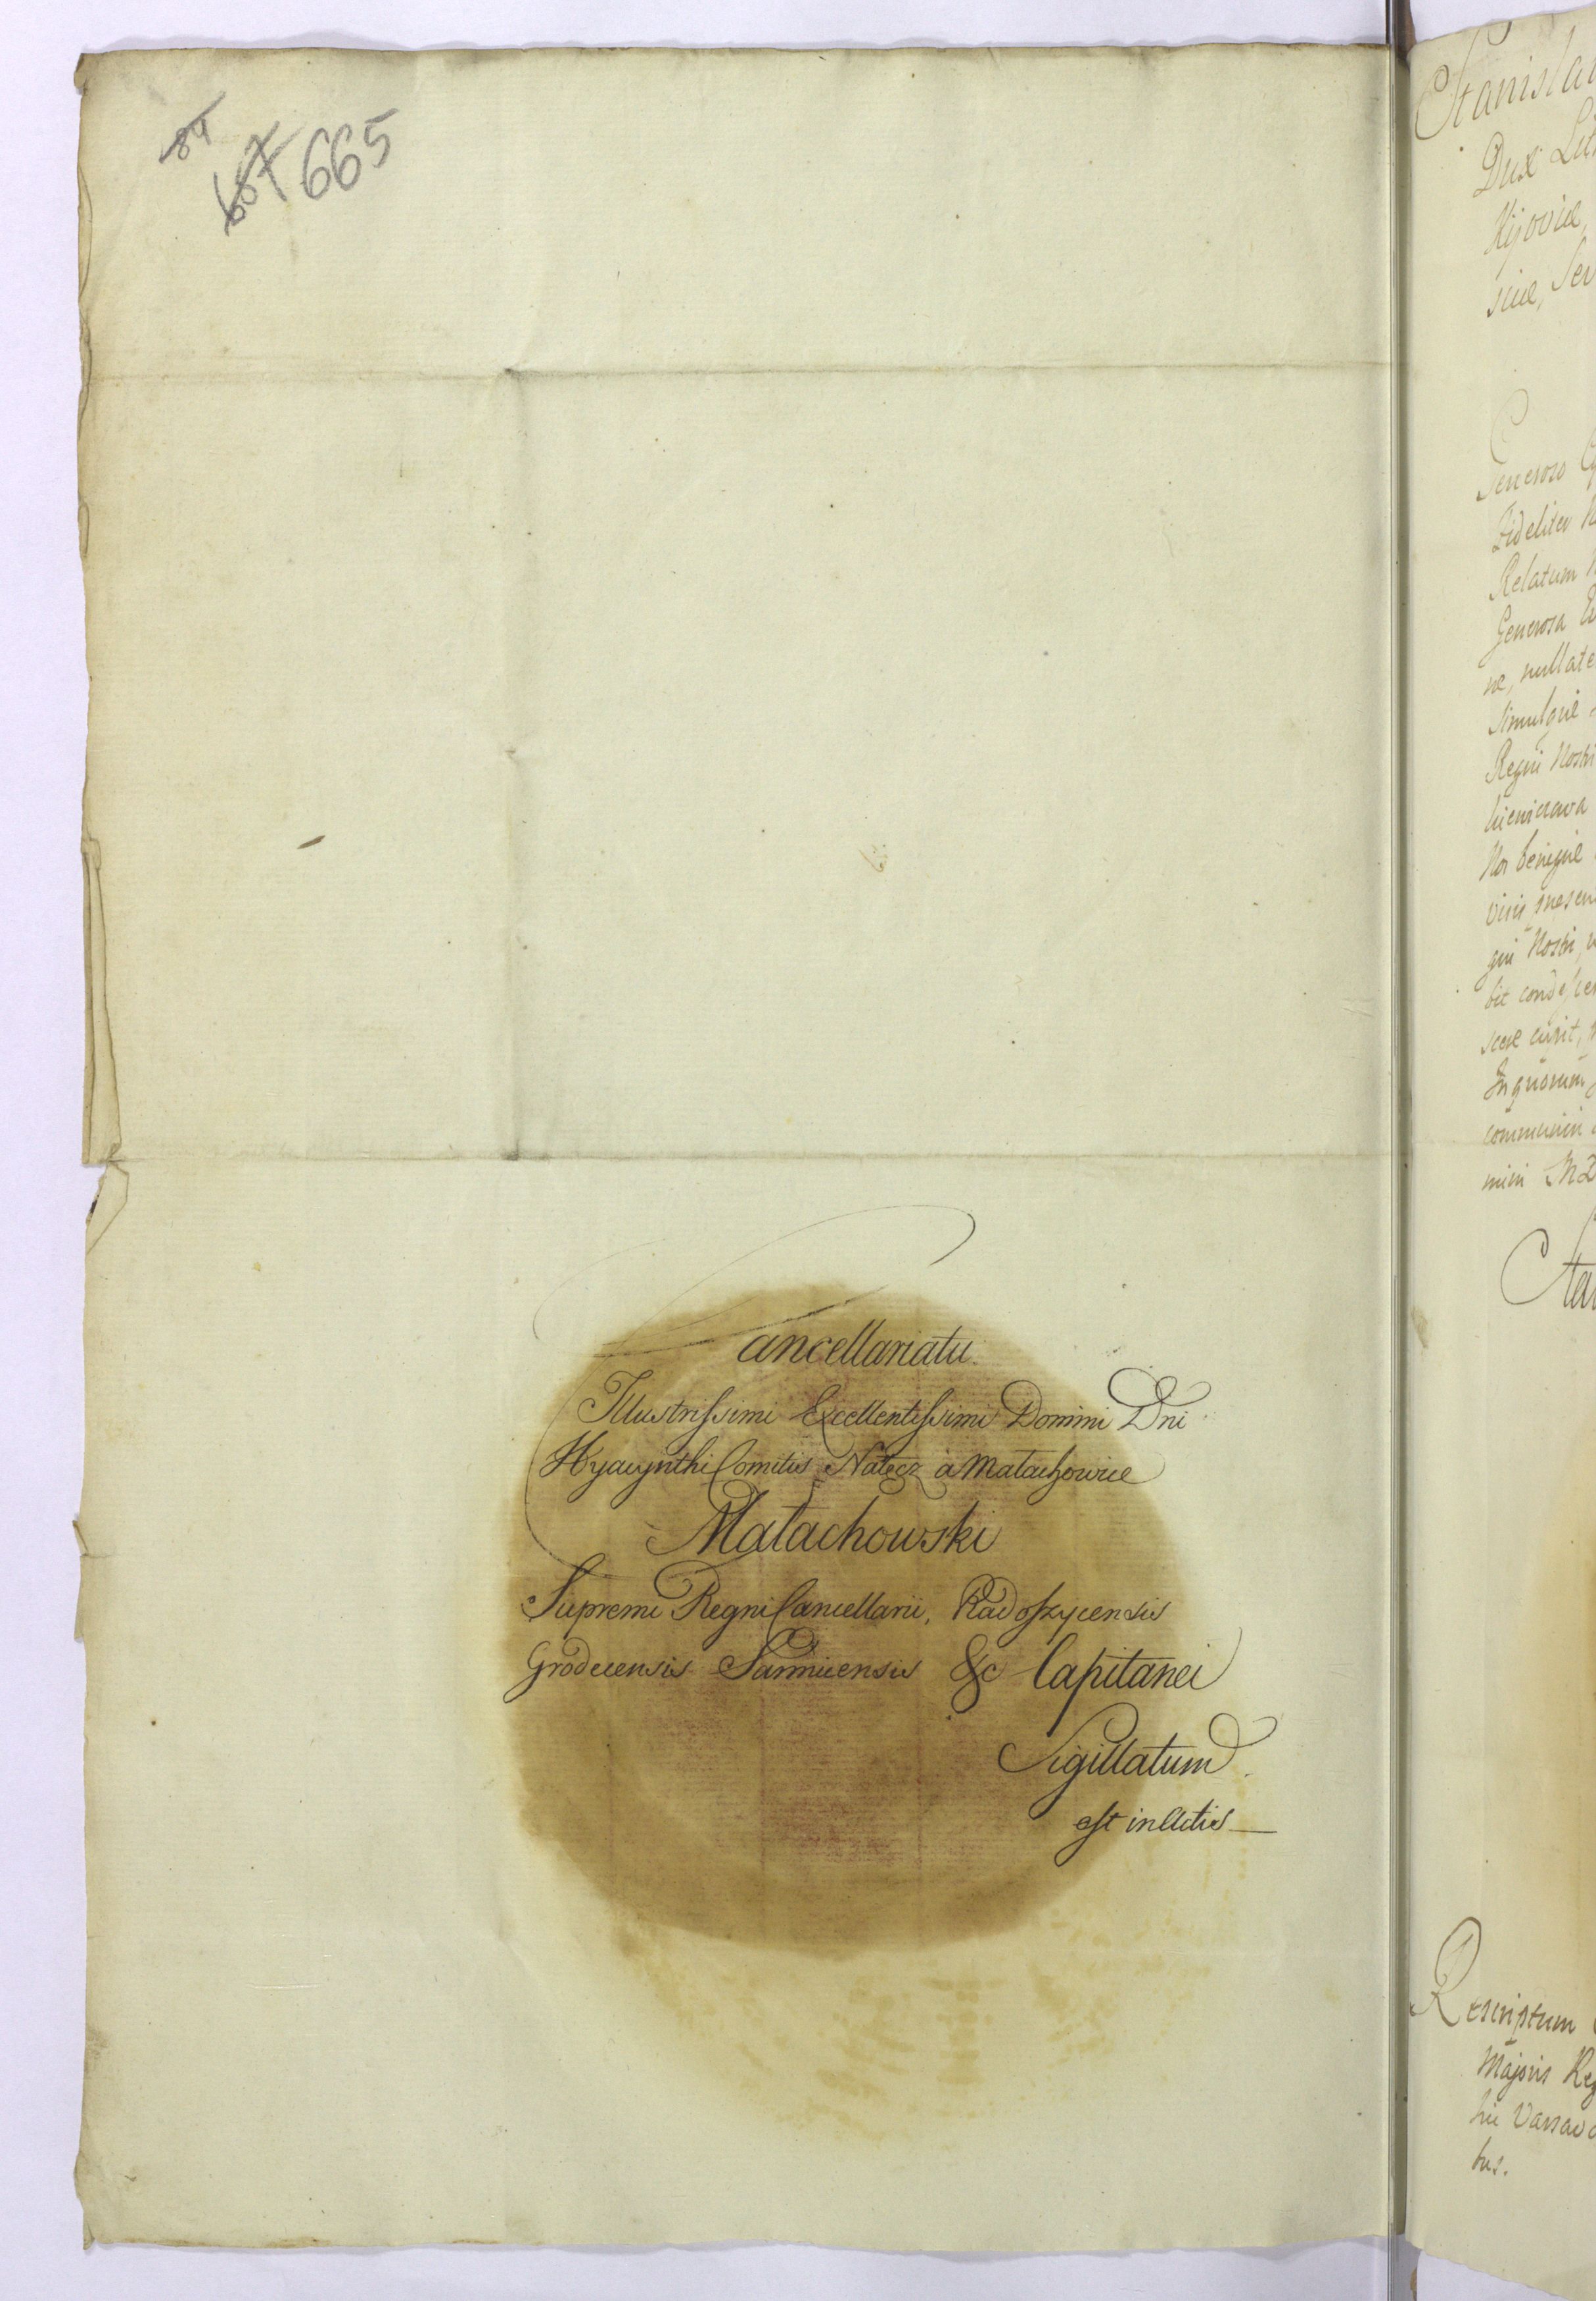 84
667 665
Cancellariatu
Illustrissimi Excellentissimi Domini Dni
Hyacynthi Comitis Nałęcz à Małachowice
Małachowski
Supremi Regni Cancellarii, Radoszycensis
Grodecensis Sannicensis &c Capitanei
Sigillatum
est in Actis
Stanisla
Dux Lit
Kijoviæ,
siæ, Sev
Generoso
Fideliter N
Relatum
Generosa
næ, nullate
simulque
Regni Nostri
Nos benigne
gni Nostri
scere cupit,
In quorum
communiri
mini MD
Sta
Rescriptum
Majoris Reg
hic Varsav
tus.